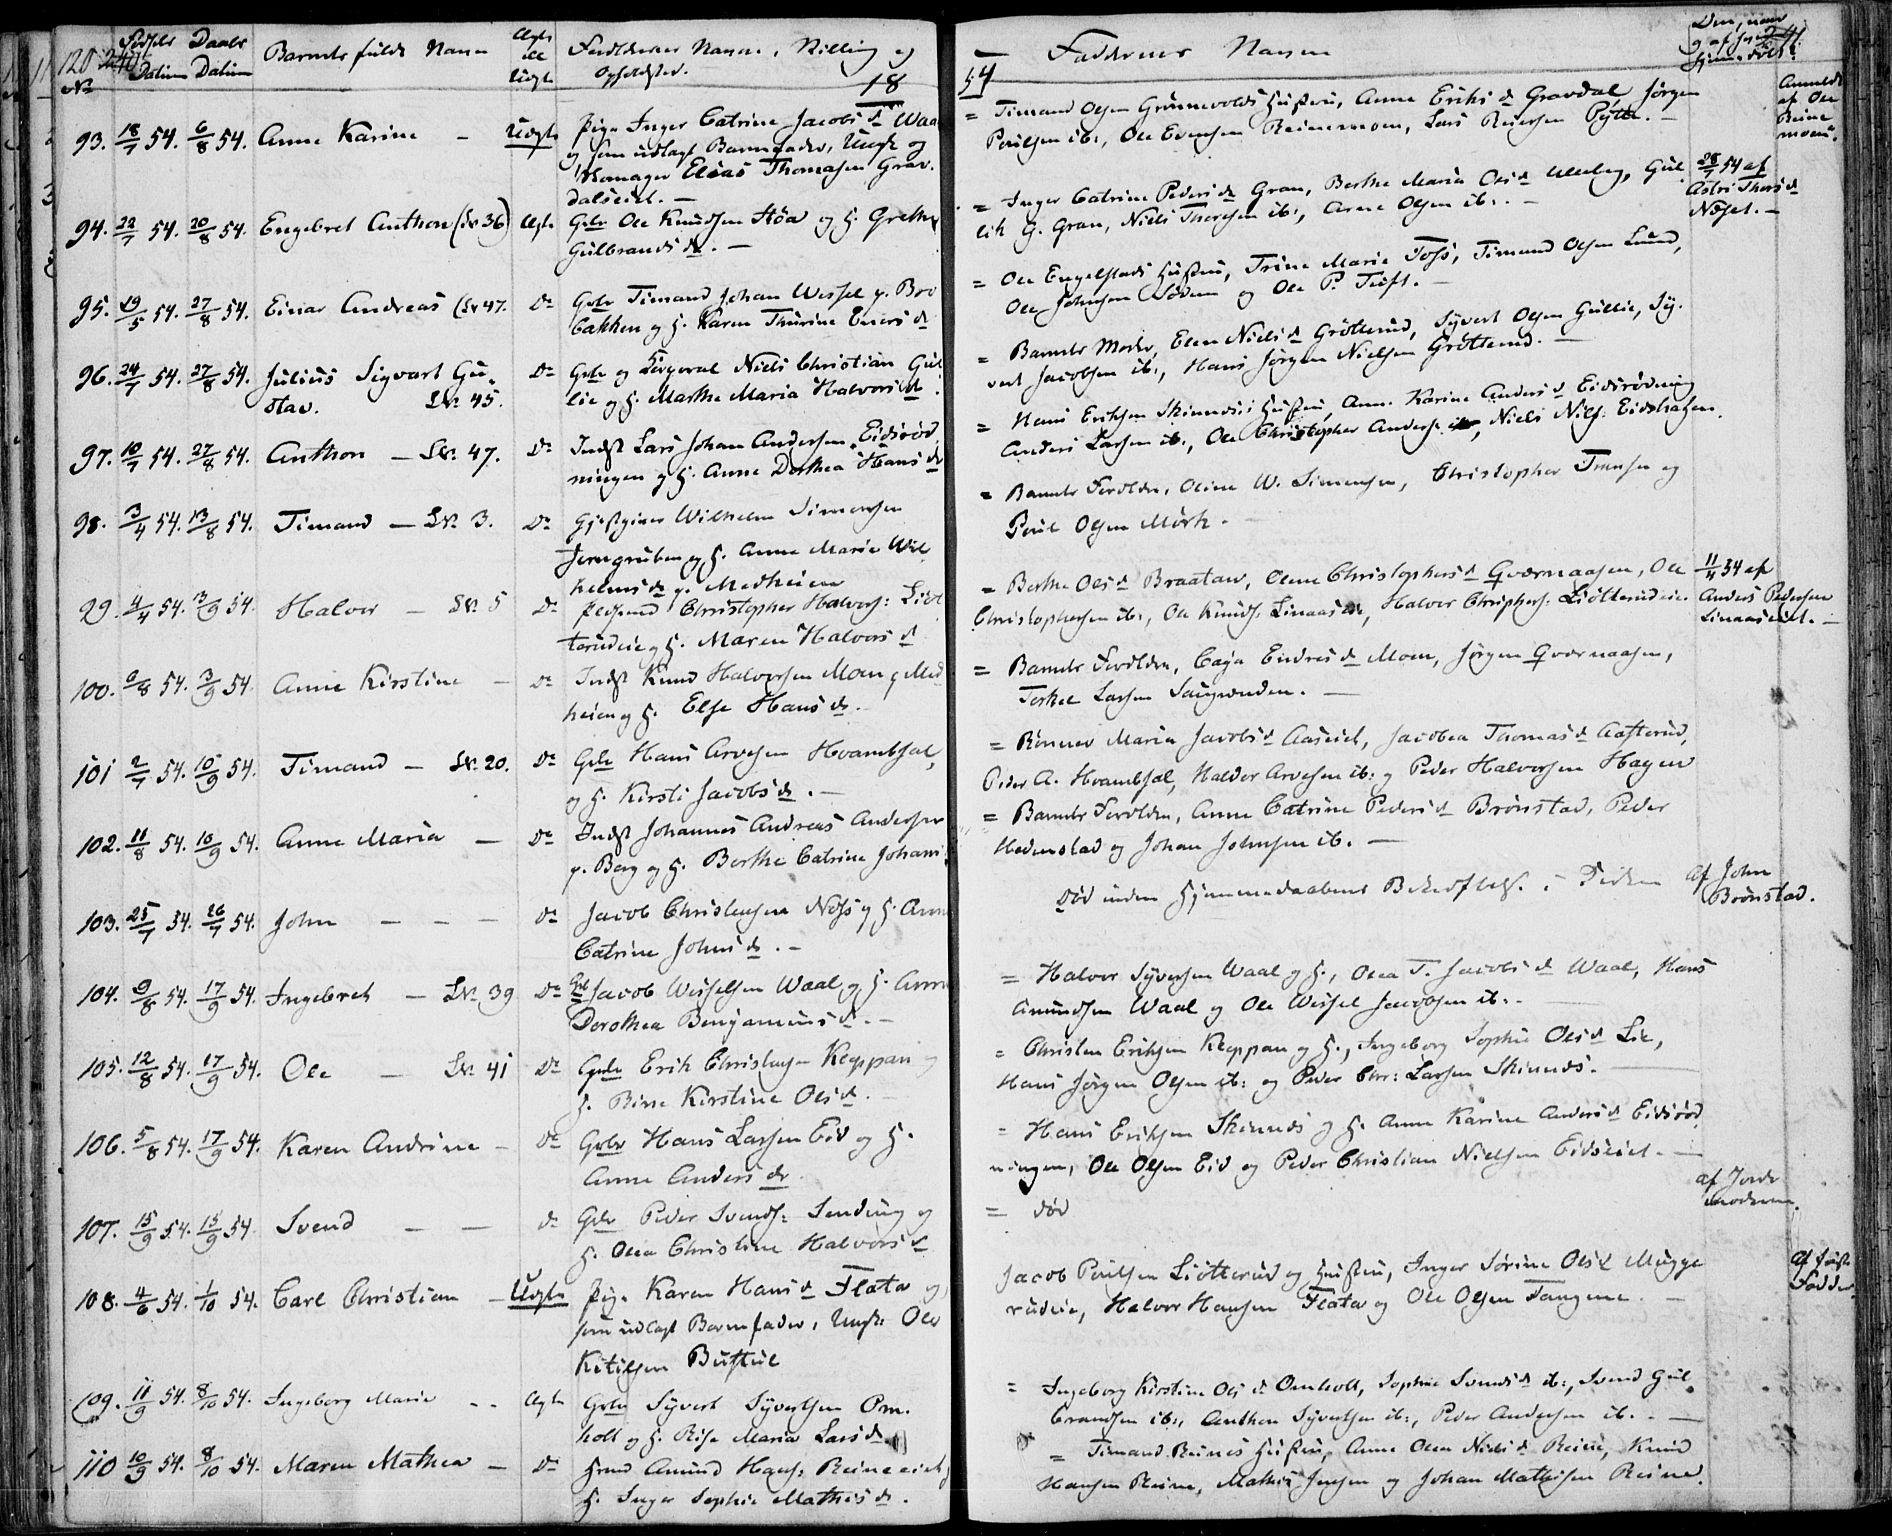 120
No
Fødsels Datum
Daabs Datum
Barnets fulde Navn
Ægte el. Uægte
Forældrenes Navne, Stilling og Opholdsted.
18
54
Faddernes Navne
93. 18/7 54. 6/8 54. Anne Karine — Uægte
Pige Inger Catrine Jacobsd Waal
og som udlagt Barnefader, Ungk og
Elias Thomasen Grav-
dalseiet. —
= Timand Olsen Grünnevolds Hustru, Anne Eriksd Gravdal, Jørgen
Poulsen ib:, Ole Evensen Reinemoen, Lars Reiersen Pytte. —
Anmeldt
af Ole
Reine
moen.
94. 22/7 54. 20/8 54. Engebret Anthon (Lv 36) Ægte
Grbr Ole Knudsen Støa og H. Grethe
Gulbrandsdr. —
= Inger Catrine Pedersdr Gran, Berthe Maria Olsd Ulleberg, Gul-
lik G. Gran, Niels Thoresen ib:, Arne Olsen ib:. —
28/7 54 af
Astri Thorsd
Næset. —
95. 29/5 54. 27/8 54. Einar Andreas (Lv 47. Do
Grbr Timand Johan Wessel p. Bro-
bakken og H. Karen Thurine Enersd
= Ole Engelstads Hustru, Trine Marie Foss, Timand Olsen Lund,
Ole Johnsen Søden og Ole P. Tuft. —
96. 24/7 54. 27/8 54. Julius Sigvart Gu-
stav. Lv. 45. Do
Grbr og Niels Christian Gul-
lie og H. Marthe Maria Halvorsd
= Barnets Moder, Elen Nielsd Grøtterud, Syvert Olsen Gullie, Sy-
vert Jacobsen ib:, Hans Jørgen Nielsen Grøtterud. —
97. 10/7 54. 27/8 54. Anthon — Lv. 47. Do
Indst Lars Johan Andersen Eidsrød-
ningen og H. Anne Dorthea Hansdr
= Hans Eriksen Skinnes's Hustru, Anne Karine Andersd Eidsrødning
Anders Larsen ib:, Ole Christopher Anders. ib:, Niels Niels: Eidshagen
98. 3/4 54. 13/8 54. Timand — Lv. 3. Do
Gjestgiver Wilhelm Simensen
Jerngruben og H. Anne Marie Wil-
helmsdr p. Medheien
= Barnets Forældre, Oline W. Simensen, Christopher Fransen og
Poul Olsen Mørk. —
99. 4/4 54. 3/9 54. Halvor — Lv. 5 Do
Christopher Halvors: Liøt-
terudeie og H. Maren Halvorsd
= Berthe Olsd Braatan, Olene Christophersd Qværnaasen, Ole
Christophersen ib:, Ole Knuds: Linaas, Halvor Christophers: Liøtterudeie.
11/4 54 af
Anders Pedersen
Linaaseiet. —
100. 6/8 54. 3/9 54. Anne Kirstine — Do
Indst Knud Halvorsen Moen p. Med-
heien og H. Else Hansdr. —
= Barnets Forældre, Caja Endresdr Moen, Jørgen Qværnaasen,
Torkel Larsen Saugrenden. —
101 2/7 54. 10/9 54. Timand — Lv. 20. Do
Grbr Hans Arvesen Hvambsal,
og H. Kirsti Jacobsdr. —
= Rønnev Maria Jacobsd Aaseiet, Jacobea Thomasd Aasterud,
Peder A. Hvambsal, Haldor Arvesen ib: og Peder Halvorsen Hagen
102. 11/8 54. 10/9 54. Anne Maria — Do
Indst Johannes Andreas Andersen
p. Berg og H. Berthe Catrine Johans
= Barnets Forældre, Anne Catrine Pedersd Brønstad, Peder
Hedenstad og Johan Johnsen ib. —
103. 25/7 54. 26/7 54. John — — — Do
Jacob Christensen Næs og H. Anne
Catrine Johnsdr. —
Død uden Hjemmedaabens Bekræftelse i Kirken
af John
Brønstad.
104. 9/8 54. 17/9 54. Ingebret — Lv. 39 Do
Grbr Jacob Wesselsen Waal og H. Anne
Dorothea Benjaminsd. —
= Halvor Syversen Waal og H., Olea T. Jacobsd Waal, Hans
Amundsen Waal og Ole Wessel Jacobsen ib:. —
105. 12/8 54. 17/9 54. Ole — Lv. 41 Do
Grbr Erik Christensen Kjeppan og
H. Birte Kirstine Olsd. —
= Christen Eriksen Kjeppan og H., Ingeborg Sophie Olsd Lie,
Hans Jørgen Olsen ib: og Peder Chr: Larsen Skinnes. —
106. 5/8 54. 17/9 54. Karen Andrine — Do
Grbr Hans Larsen Eid og H.
Anne Andersdr.
= Hans Eriksen Skinnes og H. Anne Karine Andersd Eidsrød-
ningen, Ole Olsen Eid og Peder Christian Nielsen Eidseiet. —
107. 15/9 54. 15/9 54. Svend — — Do
Grbr Peder Svends: Sending og
H. Olea Christine Halvorsd
= Død
af Jorde-
moderen.
108. 4/6 54. 1/10 54. Carl Christian — Uægte
Pige Karen Hansd Flata og
som udlagt Barnefader, Ungk: Ole
Ketilsen Bustul
Jacob Poulsen Liøtterud og Hustru, Inger Sørine Olsd Mugge-
rudeie, Halvor Hansen Flata og Ole Olsen Tangene. —
af første
Fadder.
109. 11/9 54. 8/10 54. Ingeborg Marie — Ægte
Grbr Syvert Syvertsen Om-
holt og H. Rise Maria Larsdr
= Ingeborg Kirstine Olsdr Omholt, Sophie Svendsd ib:, Svend Gul-
brandsen ib:, Anthon Syvertsen ib:, Peder Andersen ib. —
110 10/9 54. 8/10 54. Maren Mathea — Do
Amund Hans: Reineeiet og
H. Inger Sophie Mathisdr.
= Timand Reines Hustru, Anne Olea Nielsd Reine, Knud
Hansen Reine, Mathis Jensen og Johan Mathisen Reine.